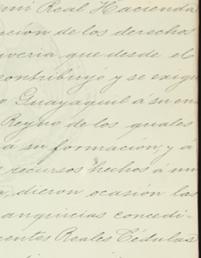 mi Real Hacienda
ación de los derechos
livería que desde el
contribuyó y se exigi
Guayaquil á su en
Reyno de los quales
á su formación, y á
recursos hechos á mi
dieron ocasión las
angricias concedi-
centos Reales Cédulas